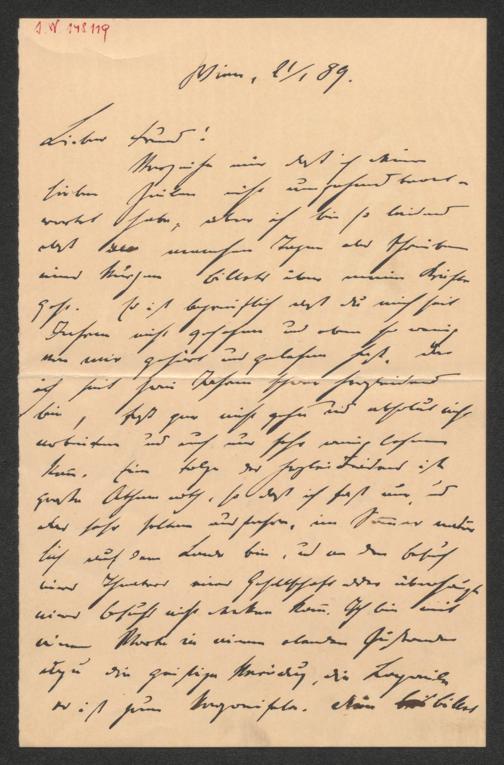 J.N. 148119
Wien, 21/1 89.
Lieber Freund!
Verzeihe mir daß ich Deine
lieben Zeilen nicht umgehend beant-
wortet habe, aber ich bin so leidend
daß an manchen Tagen das Schreiben
eines kurzen Billets über meine Kräfte
geht. Es ist begreiflich daß du mich seit
Jahren nicht gesehen und eben so wenig
von mir gehört und gelesen hast, da
ich seit zwei Jahren schwer herzleidend
bin, fast gar nicht gehen und absolut nicht
arbeiten und auch nur sehr wenig lesen
kann. Eine Folge des Herzleidens ist
große Athemnoth, so daß ich fast nie, und
aber sehr selten ausfahre, im Sommer
lich auf dem Lande bin, und an den Besuch
eines Theaters einer Gesellschaft oder überhaupt
einen Besuch nicht denken kann. Ich bin mit
einem Worte in einem elenden Zustande
dazu die geistige die Langeweile
es ist zum Verzweifeln. Dein Billet